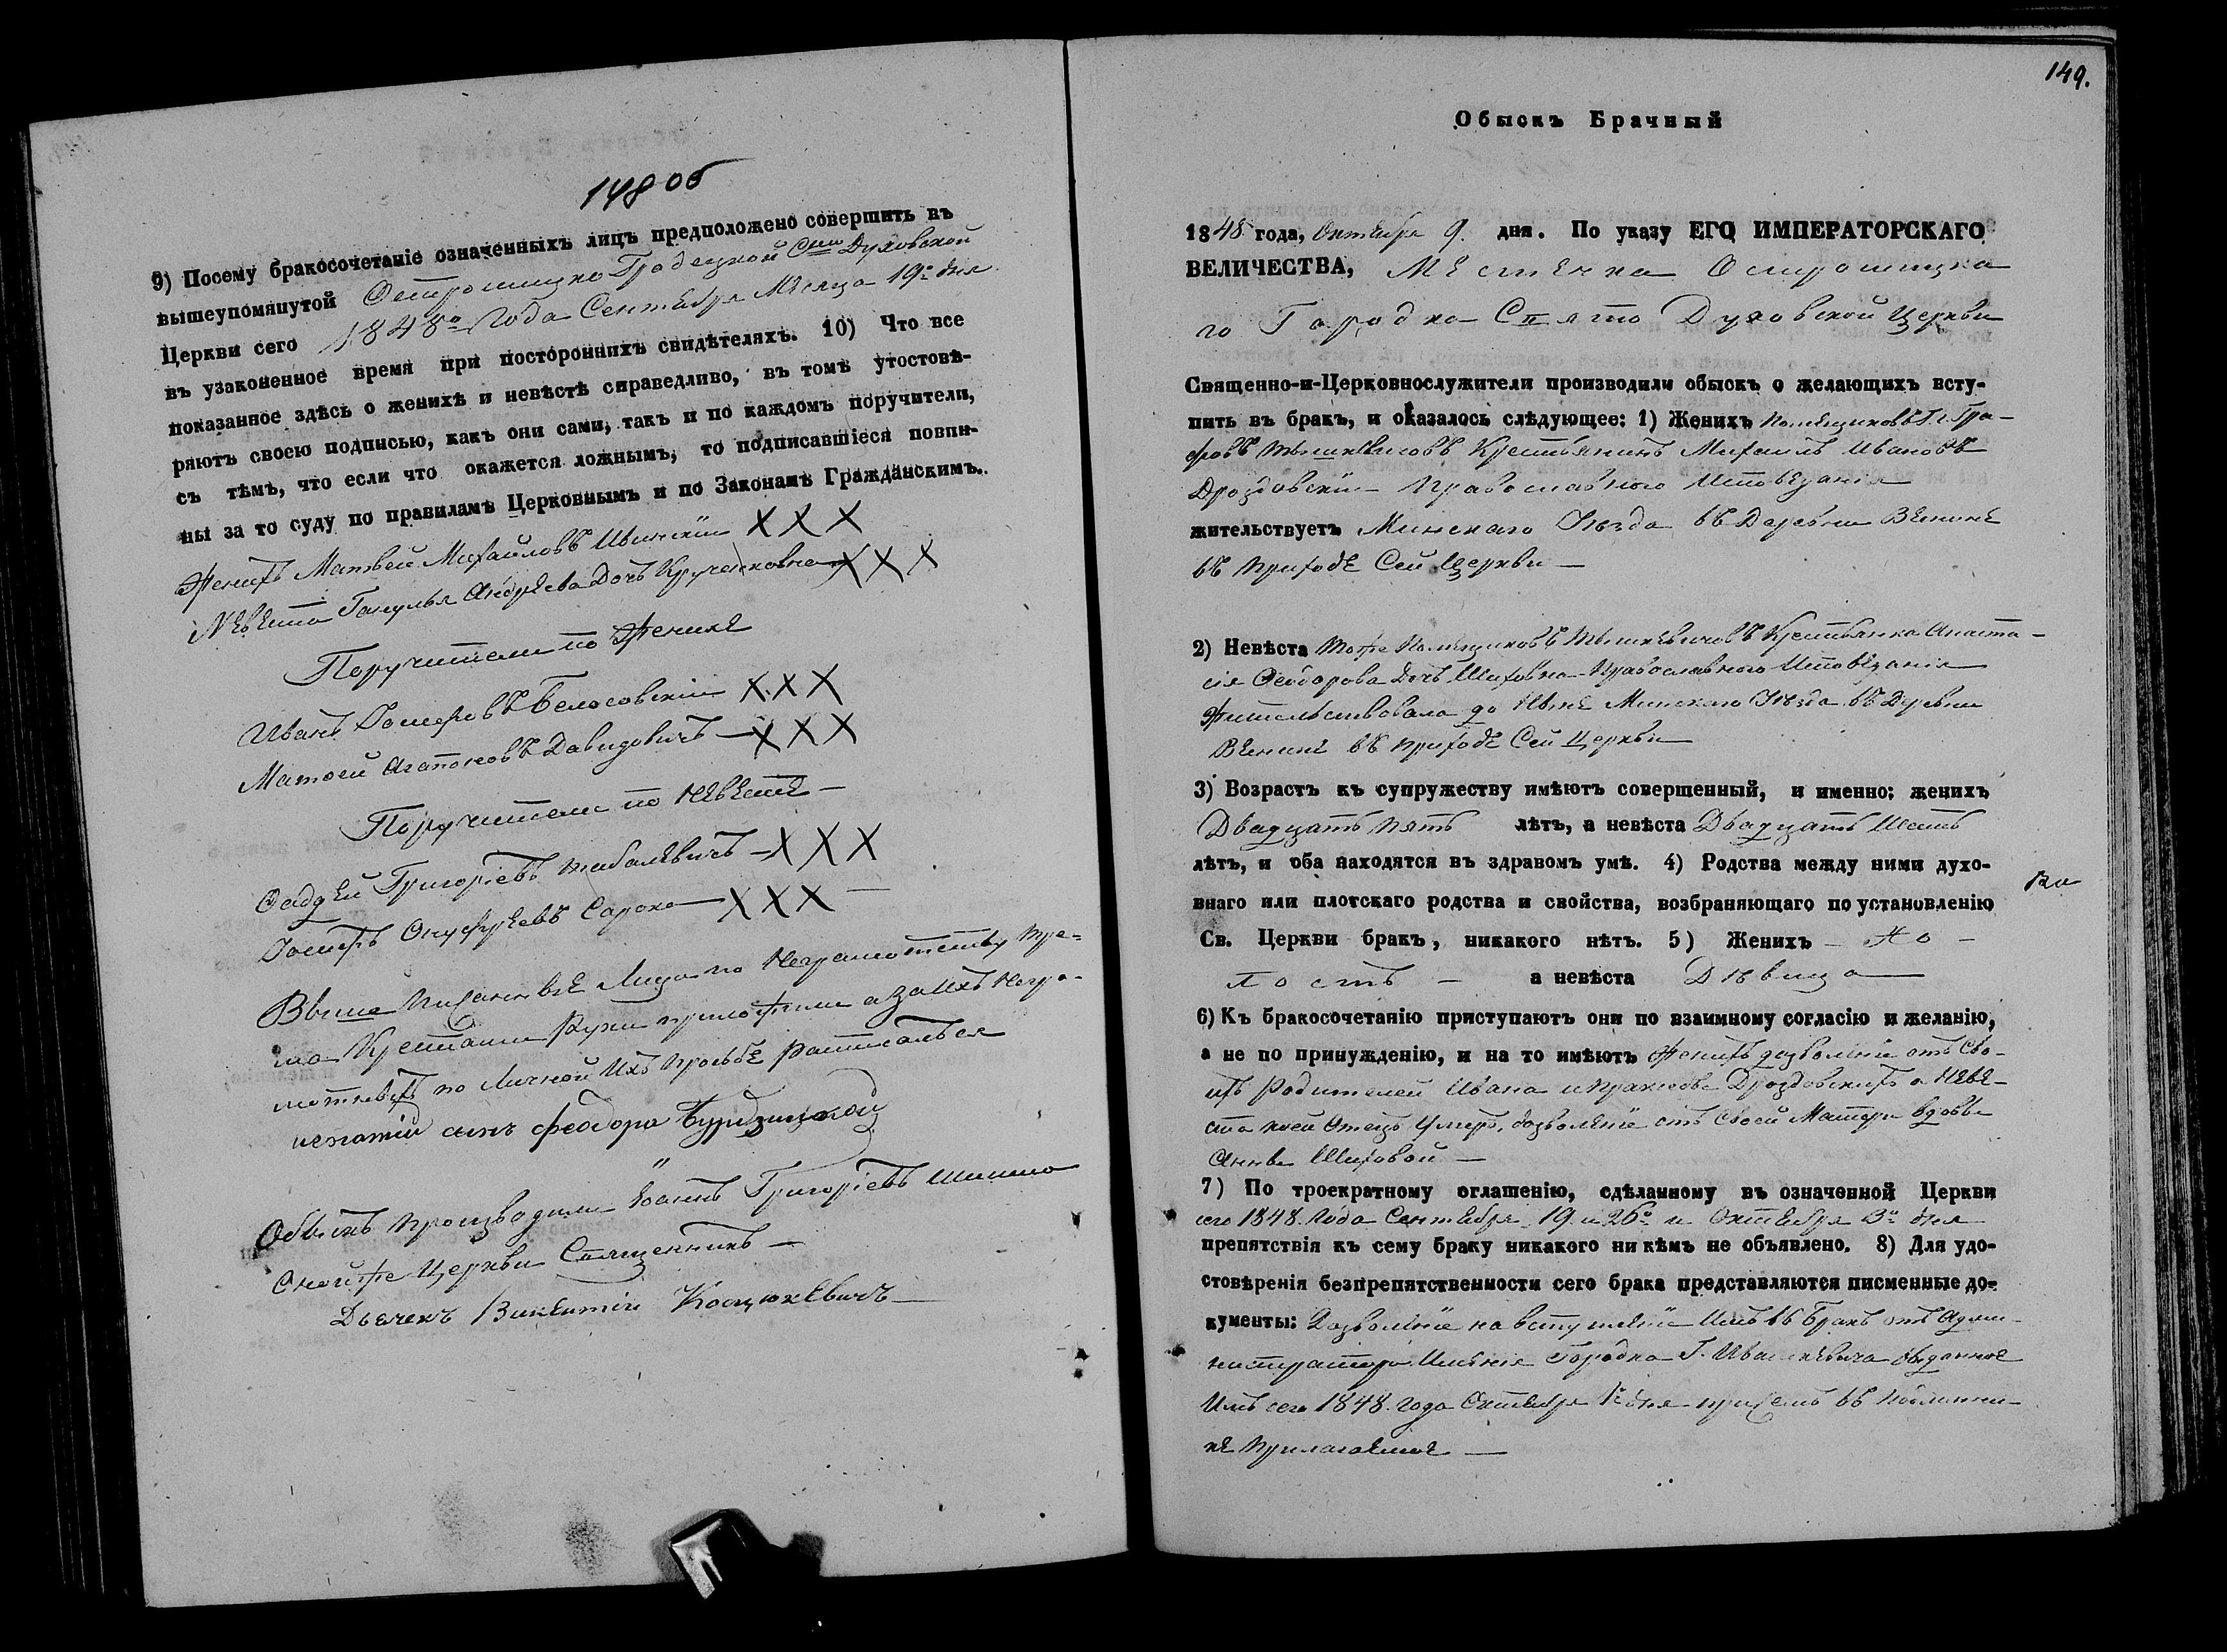 148 об
9) Посему бракосочетаніе означенныхъ лицъ предположено совершить въ
вышеупомянутой Острошицко Городецкой Сто Духовской
Церкви сего 1848го Года Сентября Месяца 19го дня
въ узаконенное время при постороннихъ свидѣтеляхъ. 10) Что все
показанное здѣсь о женихѣ и невѣстѣ справедливо, въ томъ утостовѣ-
ряютъ своею подписью, какъ они сами, такъ и по каждомъ поручители,
съ тѣмъ, что если что окажется ложнымъ, то подписавшіеся повин-
ны за то суду по правиламъ Церковнымъ и по Законамъ Гражданскимъ.
Женихъ Матвей Михайловъ Ивинскій X X X
Невеста Ганулья Андреева Дочь X X X
Поручители по Женихе
Иванъ Іосифовъ Белосовскій X X X
Матвей Агапоновъ Давидовичъ X X X
Поручители по Невесте
Фадей Григоріевъ X X X
Іосифъ Онуфріевъ Сароко X X X
Выше Писанные Лица по Неграмотству
Крестами Руки приложили а за ихъ Негра-
мотныхъ по Личной Ихъ прозьбе расписался
игнатій сынъ феодора
Обыскъ Производили Іоаннъ Григоріевъ
Оной же Церкви Священникъ
Дьячекъ Викентій Косцюкевичъ
149.
Обыскъ Брачный
1848 года, Октября 9. дня. По указу ЕГО ИМПЕРАТОРСКАГО
ВЕЛИЧЕСТВА, Местечка Острошицка
го Городка Свято Духовской Церкви
Священно-и-Церковнослужители производили обыскъ о желающихъ всту-
пить въ бракъ, и оказалось слѣдующее: 1) Женихъ Помещиковъ Г. Гра-
фовъ Тышкевичовъ Крестьянинъ Михаилъ Ивановъ
Дроздовскій Православного Исповѣданія
жительствуетъ Минскаго Уезда въ Деревни Венине
въ Приходе Сей Церкви
2) Невѣста тоже Помещиковъ Тышкевичовъ Крестьянка Анаста-
сія Феодорова Дочь Шиховна Православного Исповѣданія
Жительствовала до Ныне Минскаго Уезда въ Деревни
Венине въ приходе Сей Церкви
3) Возрастъ къ супружеству имѣютъ совершенный, и именно; женихъ
Двадцать Пять лѣтъ, а невѣста Двадцать Шесть
лѣтъ, и оба находятся въ здравомъ умѣ. 4) Родства между ними духо-
внаго или плотскаго родства и свойства, возбраняющаго по установленію
Св. Церкви бракъ, никакого нѣтъ. 5) Женихъ - Хо -
лостъ - а невѣста Дѣвица
6) Къ бракосочетанію приступаютъ они по взаимному согласію и желанію,
а не по принужденію, и на то имѣютъ Женихъ дозволеніе отъ Сво-
ихъ Родителей Ивана и Дроздовскихъ а Неве-
ста коей Отецъ Умеръ, дозволеніе отъ Своей Матери вдовы
Анны Шиховой
7) По троекратному оглашенію, сдѣланному въ означенной Церкви
сего 1848. Года Сентября 19. и 26го и Октября 3го дня
препятствія къ сему браку никакого ни кѣмъ не объявлено. 8) Для удо-
стовѣренія безпрепятственности сего брака представляются писменные до-
кументы: Дозволеніе на вступленіе Имъ въ Бракъ отъ Адми-
нистратора Именія Городка Г. Ивашкевича выданное
Имъ сего 1848. года Октября 1го дня при семъ въ подлинни-
ке Прилагаемое